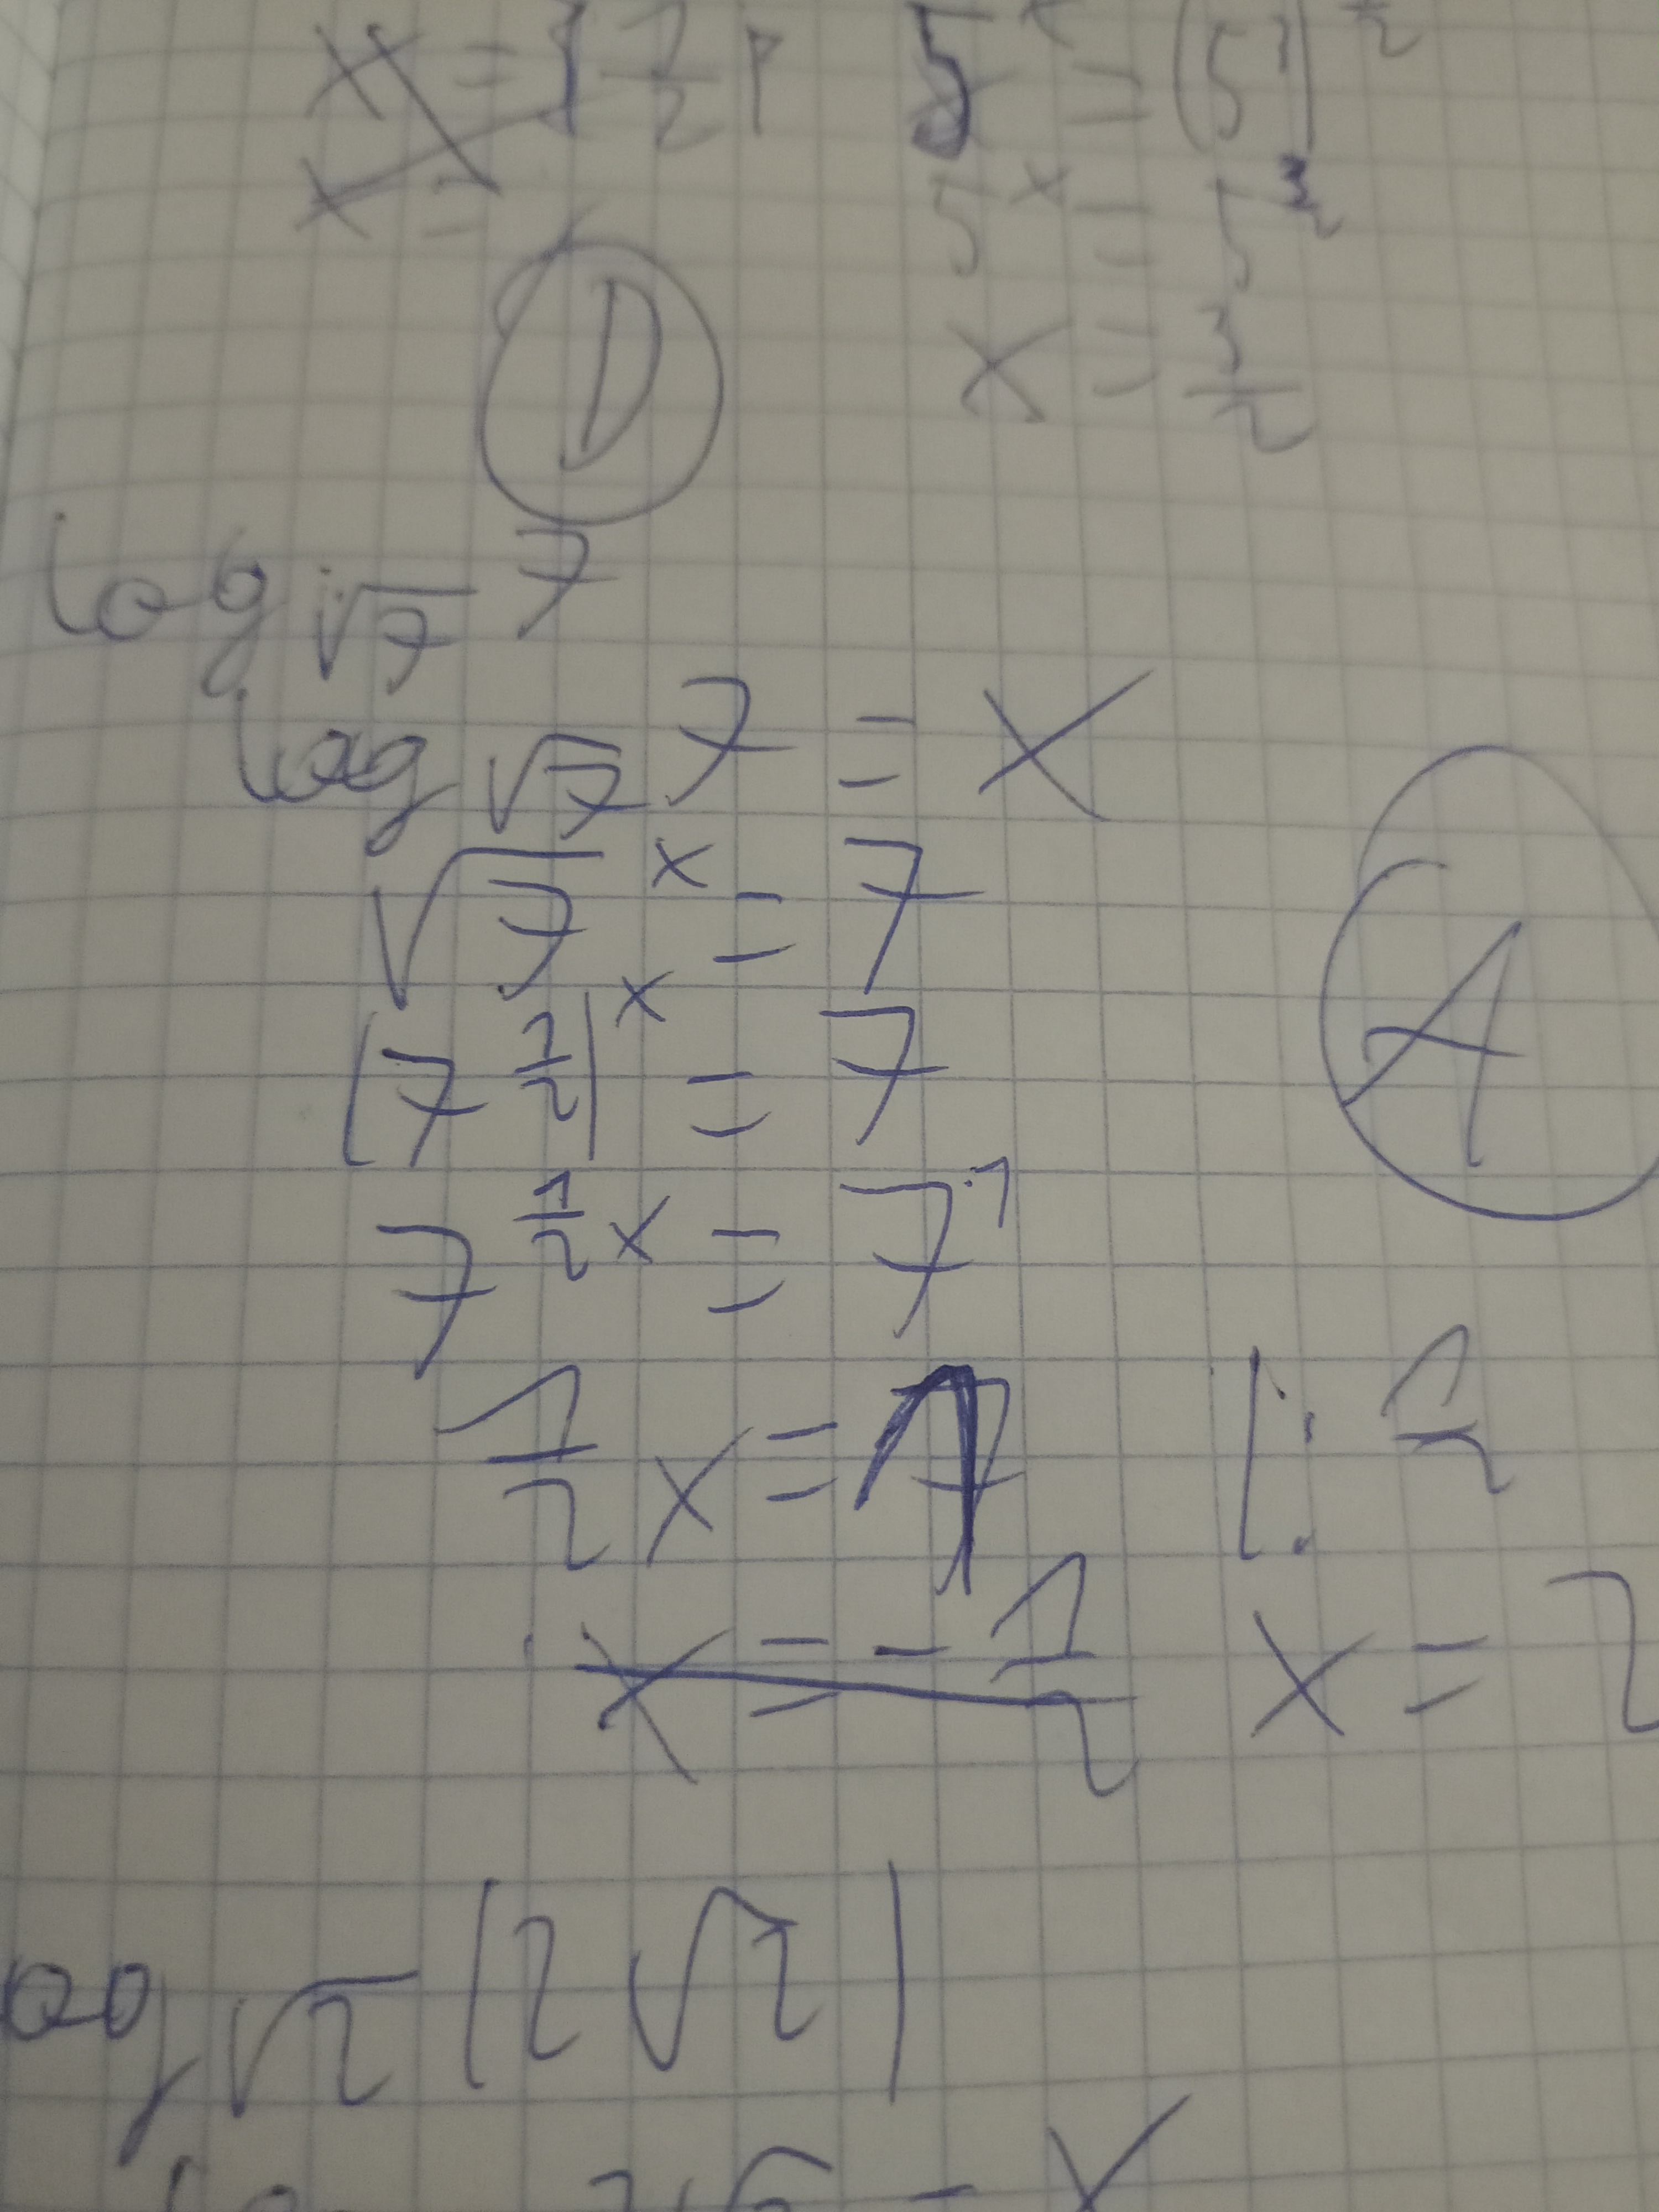 5^x = (5^3)^{\frac{1}{2}}
5^x = 5^{\frac{3}{2}}
x = \frac{3}{2}
D
log_{\sqrt{7}} 7
log_{\sqrt{7}} 7 = x
\sqrt{7}^x = 7
(7^{\frac{1}{2}})^x = 7
7^{\frac{1}{2}x} = 7^1
A
\frac{1}{2}x = 1 |: \frac{1}{2}
x = -\frac{1}{2} x = 2
log_{\sqrt{2}} (2\sqrt{2})